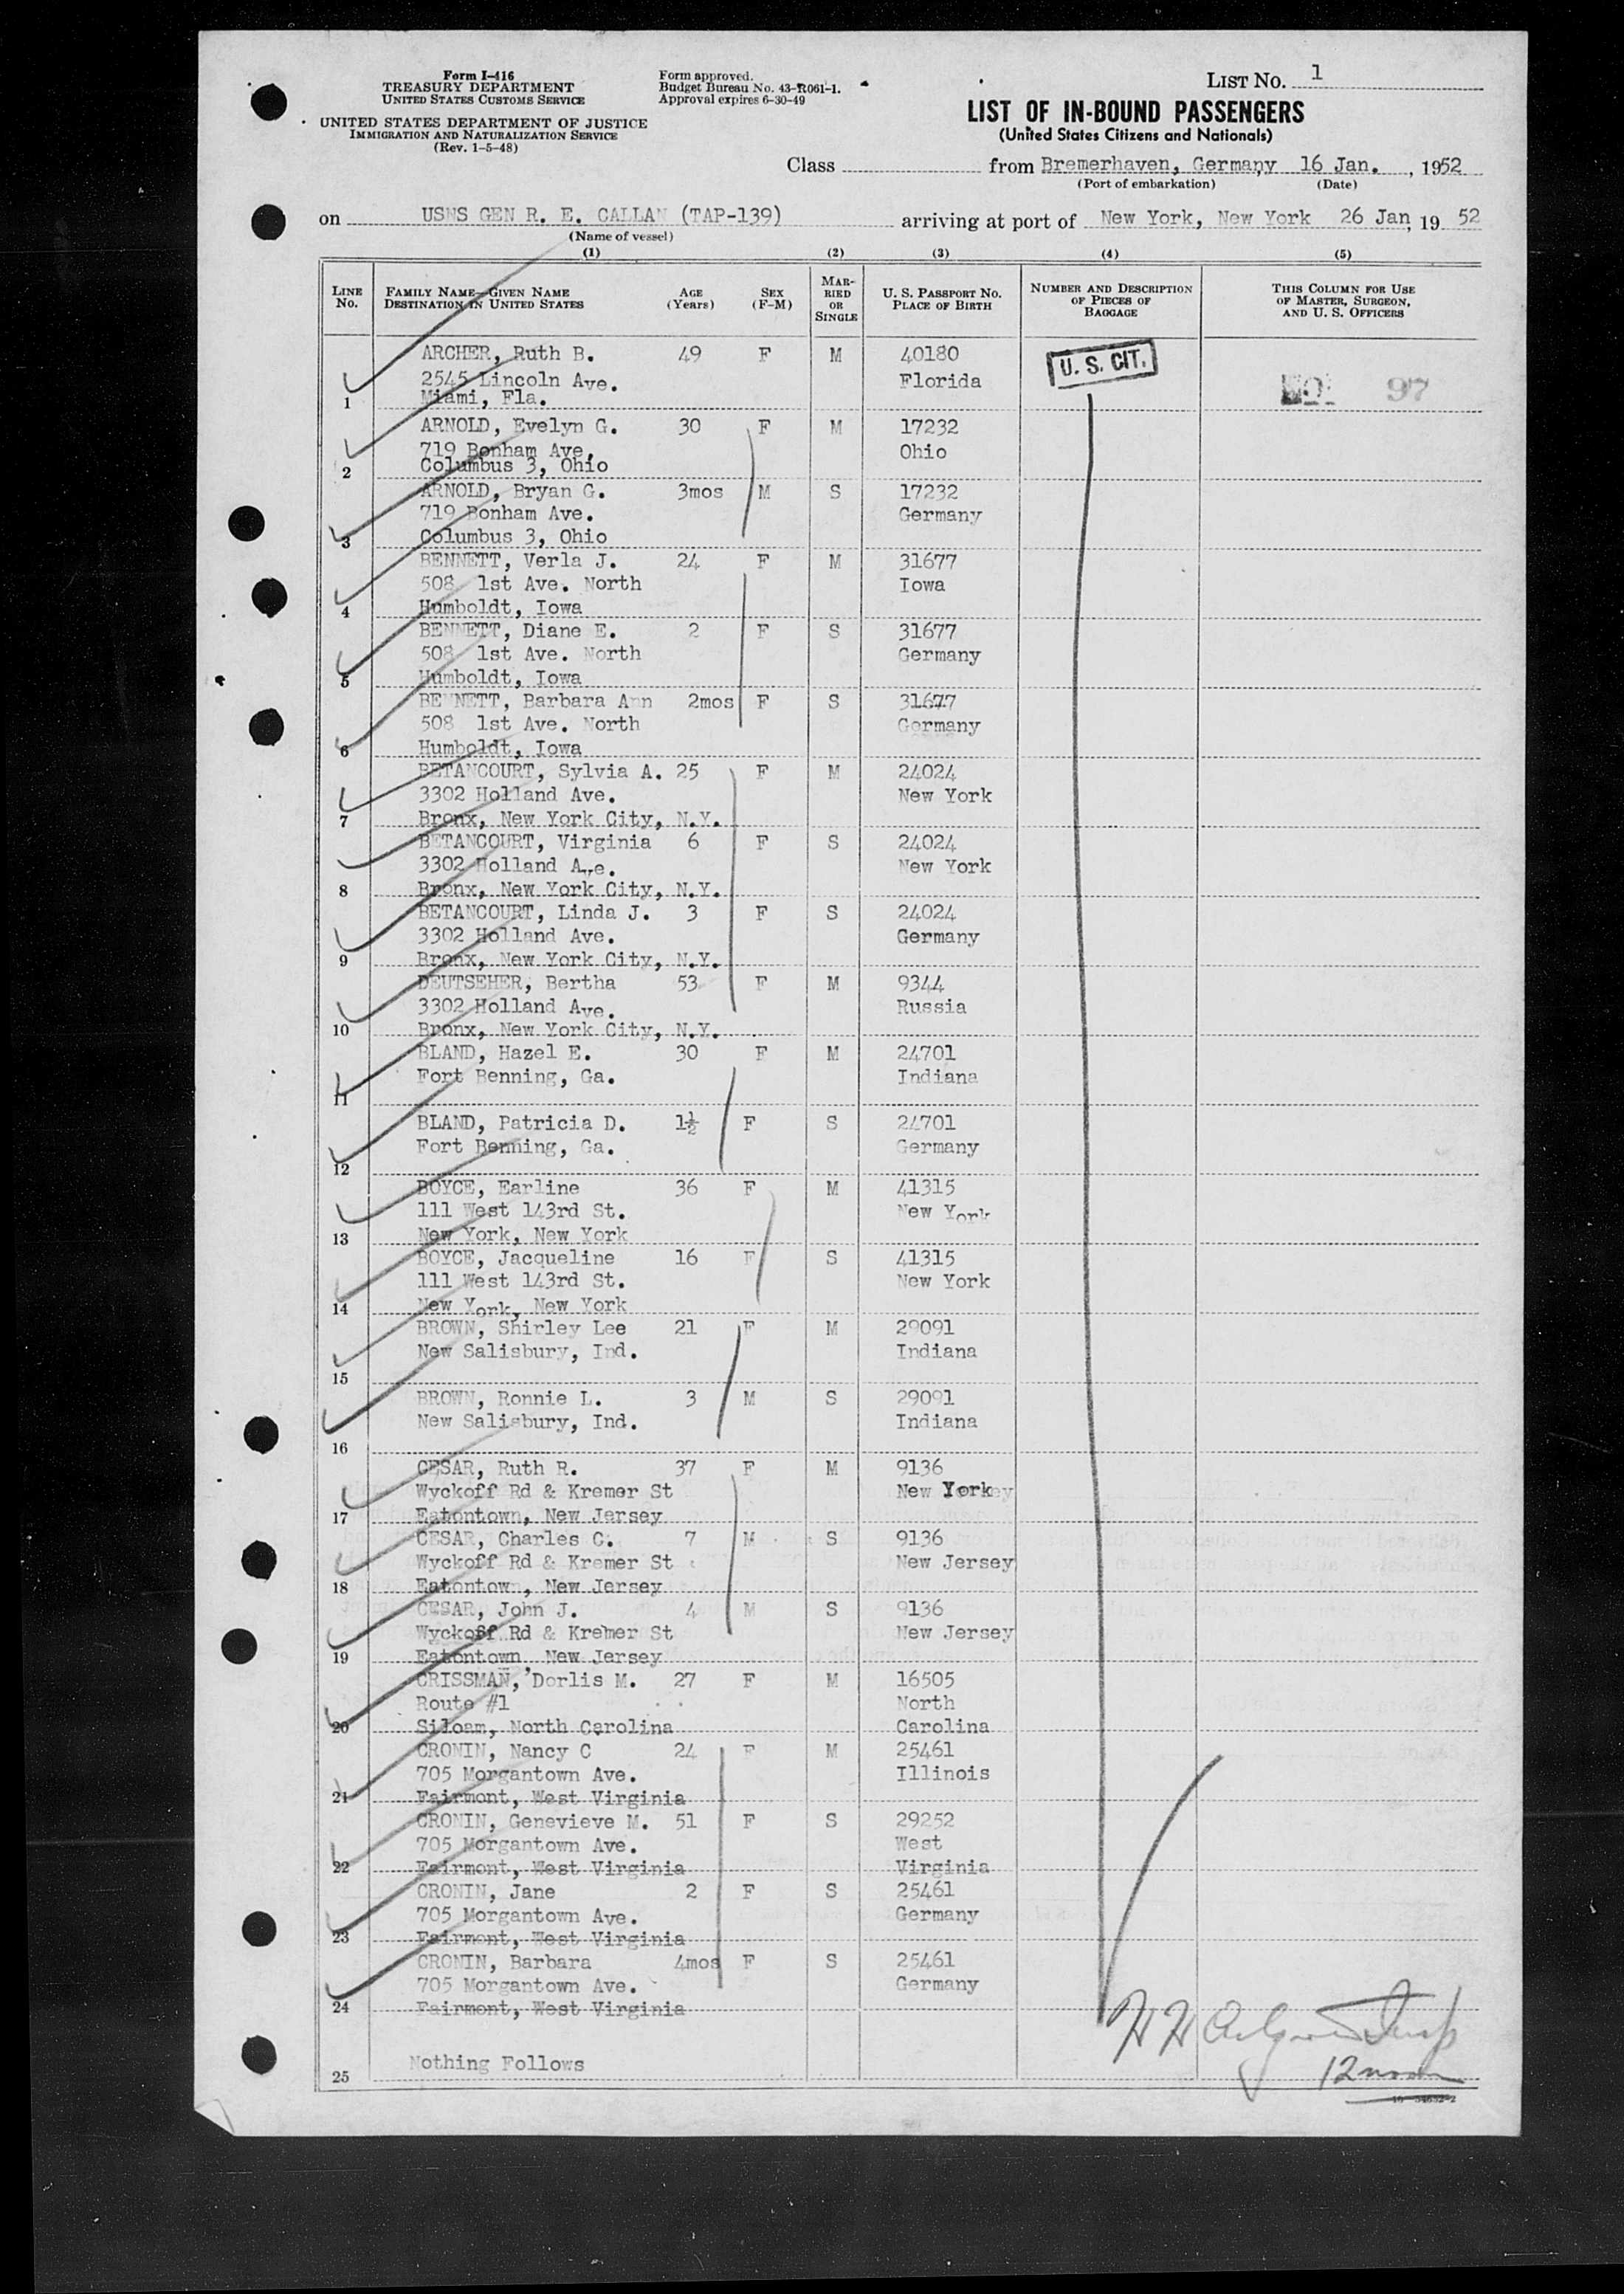 Form I-416
TREASURY DEPARTMENT
UNITED STATES CUSTOMS SERVICE
UNITED STATES DEPARTMENT OF JUSTICE
IMMIGRATION AND NATURALIZATION SERVICE
(Rev. 1-5-48)
Form approved.
Budget Bureau No. 43-R061-1.
Approval expires 6-30-49
LIST No. 1
LIST OF IN-BOUND PASSENGERS
(United States Citizens and Nationals)
Class from Bremerhaven, Germany 16 Jan. , 1952
(Port of embarkation) (Date)
on USNS GEN R. E. CALLAN (TAP-139) arriving at port of New York, New York 26 Jan, 19 52
(Name of vessel)
(1) (2) (3) (4) (5)
LINE No. FAMILY NAME—GIVEN NAME DESTINATION IN UNITED STATES AGE (Years) SEX (F-M) MARRIED OR SINGLE U. S. PASSPORT No. PLACE OF BIRTH NUMBER AND DESCRIPTION OF PIECES OF BAGGAGE THIS COLUMN FOR USE OF MASTER, SURGEON, AND U. S. OFFICERS
ARCHER, Ruth B. 49 F M 40180 U. S. CIT.
2545 Lincoln Ave. Florida 97
1 Miami, Fla.
ARNOLD, Evelyn G. 30 F M 17232
719 Bonham Ave. Ohio
2 Columbus 3, Ohio
ARNOLD, Bryan G. 3mos M S 17232
719 Bonham Ave. Germany
3 Columbus 3, Ohio
BENNETT, Verla J. 24 F M 31677
508 1st Ave. North Iowa
4 Humboldt, Iowa
BENNETT, Diane E. 2 F S 31677
508 1st Ave. North Germany
5 Humboldt, Iowa
BENNETT, Barbara Ann 2mos F S 31677
508 1st Ave. North Germany
6 Humboldt, Iowa
BETANCOURT, Sylvia A. 25 F M 24024
3302 Holland Ave. New York
7 Bronx, New York City, N.Y.
BETANCOURT, Virginia 6 F S 24024
3302 Holland Ave. New York
8 Bronx, New York City, N.Y.
BETANCOURT, Linda J. 3 F S 24024
3302 Holland Ave. Germany
9 Bronx, New York City, N.Y.
DEUTSEHER, Bertha 53 F M 9344
3302 Holland Ave. Russia
10 Bronx, New York City, N.Y.
BLAND, Hazel E. 30 F M 24701
Fort Benning, Ga. Indiana
11
BLAND, Patricia D. 1½ F S 24701
Fort Benning, Ga. Germany
12
BOYCE, Earline 36 F M 41315
111 West 143rd St. New York
13 New York, New York
BOYCE, Jacqueline 16 F S 41315
111 West 143rd St. New York
14 New York, New York
BROWN, Shirley Lee 21 F M 29091
New Salisbury, Ind. Indiana
15
BROWN, Ronnie L. 3 M S 29091
New Salisbury, Ind. Indiana
16
CESAR, Ruth R. 37 F M 9136
Wyckoff Rd & Kremer St New York
17 Eatontown, New Jersey
CESAR, Charles C. 7 M S 9136
Wyckoff Rd & Kremer St New Jersey
18 Eatontown, New Jersey
CESAR, John J. 4 M S 9136
Wyckoff Rd & Kremer St New Jersey
19 Eatontown, New Jersey
CRISSMAN, Dorlis M. 27 F M 16505
Route #1 North
20 Siloam, North Carolina Carolina
CRONIN, Nancy C 24 F M 25461
705 Morgantown Ave. Illinois
21 Fairmont, West Virginia
CRONIN, Genevieve M. 51 F S 29252
705 Morgantown Ave. West
22 Fairmont, West Virginia Virginia
CRONIN, Jane 2 F S 25461
705 Morgantown Ave. Germany
23 Fairmont, West Virginia
CRONIN, Barbara 4mos F S 25461
705 Morgantown Ave. Germany
24 Fairmont, West Virginia
Nothing Follows
25
12 noon